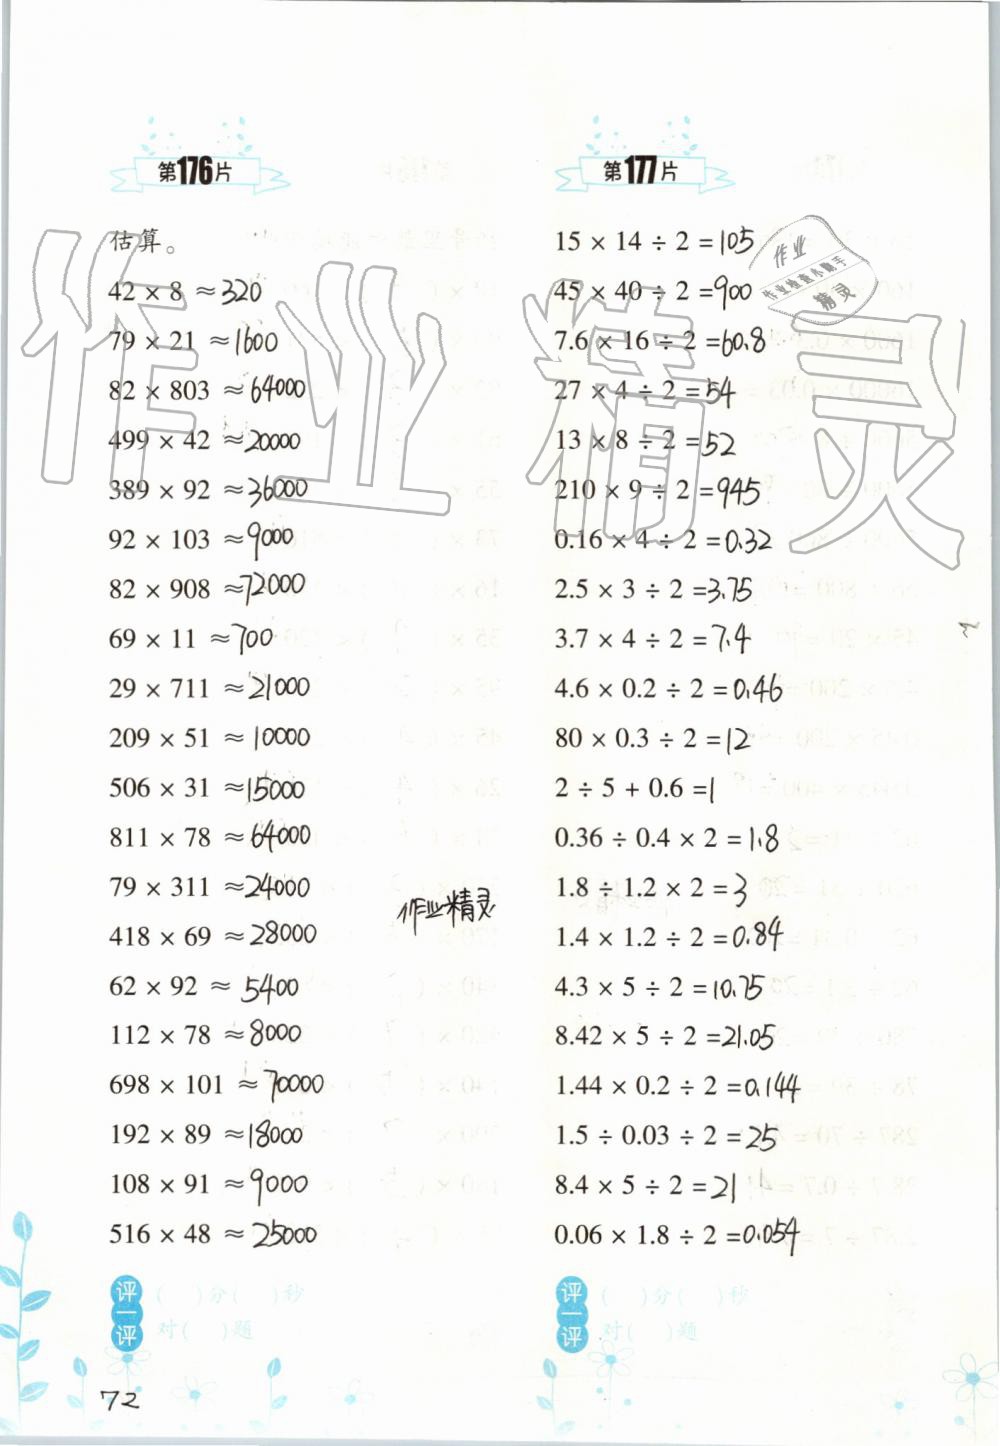 第176片
估算。
42 × 8 ≈320
79 × 21 ≈1600
82 × 803 ≈64000
499 × 42 ≈20000
389 × 92 ≈36000
92 × 103 ≈9000
82 × 908 ≈72000
69 × 11 ≈700
29 × 711 ≈21000
209 × 51 ≈10000
506 × 31 ≈15000
811 × 78 ≈64000
79 × 311 ≈24000
418 × 69 ≈28000
62 × 92 ≈5400
112 × 78 ≈8000
698 × 101 ≈70000
192 × 89 ≈18000
108 × 91 ≈9000
516 × 48 ≈25000
评一评
( )分( )秒
对( )题
72
作业精灵
第177片
15 × 14 ÷ 2 =105
45 × 40 ÷ 2 =900
7.6 × 16 ÷ 2 =60.8
27 × 4 ÷ 2 =54
13 × 8 ÷ 2 =52
210 × 9 ÷ 2 =945
0.16 × 4 ÷ 2 =0.32
2.5 × 3 ÷ 2 =3.75
3.7 × 4 ÷ 2 =7.4
4.6 × 0.2 ÷ 2 =0.46
80 × 0.3 ÷ 2 =12
2 ÷ 5 + 0.6 =1
0.36 ÷ 0.4 × 2 =1.8
1.8 ÷ 1.2 × 2 =3
1.4 × 1.2 ÷ 2 =0.84
4.3 × 5 ÷ 2 =10.75
8.42 × 5 ÷ 2 =21.05
1.44 × 0.2 ÷ 2 =0.144
1.5 ÷ 0.03 ÷ 2 =25
8.4 × 5 ÷ 2 =21
0.06 × 1.8 ÷ 2 =0.054
评一评
( )分( )秒
对( )题
作业精灵
作业
精灵